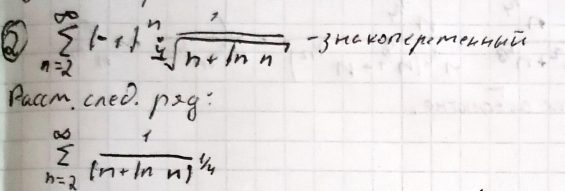 ② ∞ ∑ n=2 (-1)^n 1/⁴√(n+ln n) - знакопеременный
Рассм. след. ряд:
∞ ∑ n=2 1/(n+ln n)^1/4